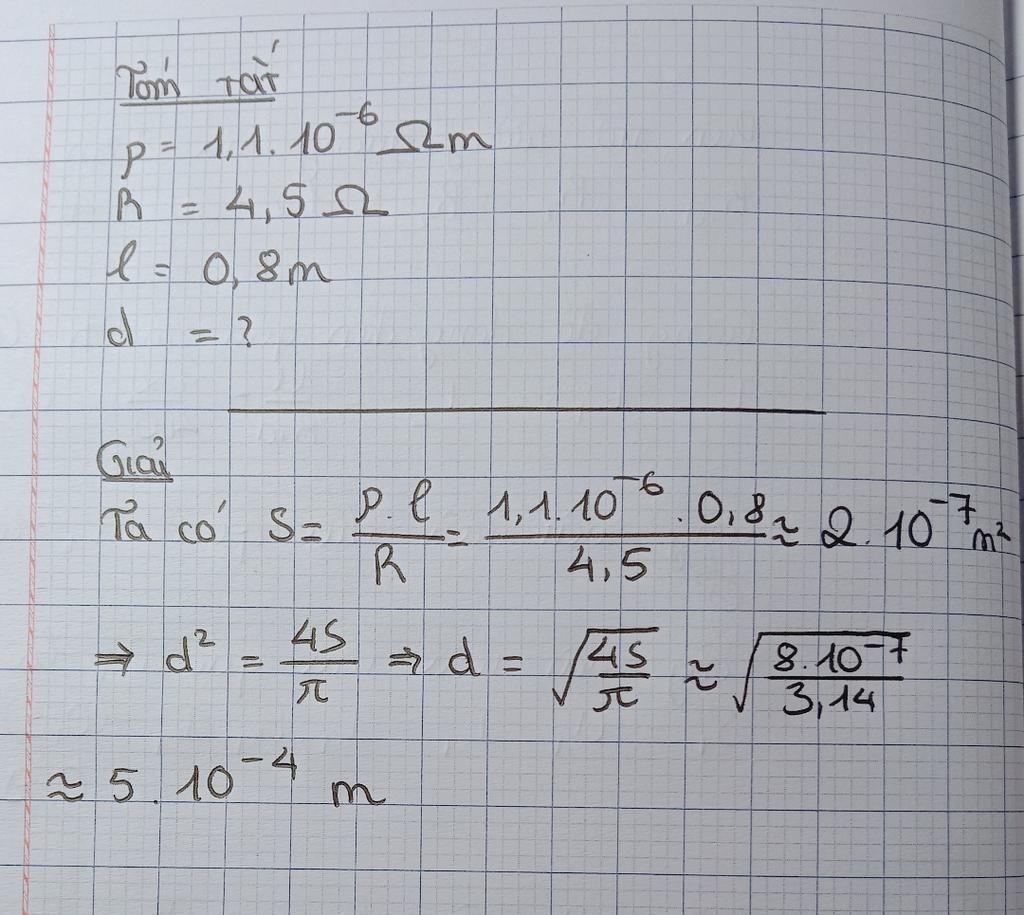 Tóm tắt
ρ = 1,1.10⁻⁶ Ωm
R = 4,5 Ω
l = 0,8m
d = ?
Giải
Ta có S = ρ.l/R = 1,1.10⁻⁶.0,8/4,5 ≈ 2.10⁻⁷ m²
⇒ d² = 4S/π ⇒ d = √(4S/π) ≈ √(8.10⁻⁷/3,14)
≈ 5.10⁻⁴ m